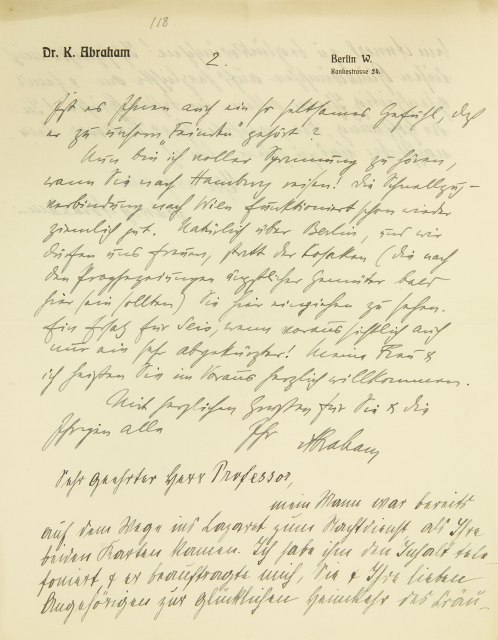 118
Dr. K. Abraham
2.
Berlin W.
Rankestrasse 24.
Ist es Ihnen auch ein so seltsames Gefühl, daß
er zu unsern „Feinden" gehört?
Nun bin ich voller Spannung zu hören,
wann Sie nach Hamburg reisen! Die Schnellzug-
verbindung nach Wien funktioniert schon wieder
ziemlich gut. Natürlich über Berlin, und wir
dürfen uns freuen, statt der Kosaken (die nach
den Prophezeiungen ängstlicher Gemüter bald
hier sein sollten) Sie hier einziehen zu sehen.
Ein Ersatz für Seis, wenn voraussichtlich auch
nur ein sehr abgekürzter! Meine Frau &
ich heißen Sie im Voraus herzlich willkommen.
Mit herzlichen Grüßen für Sie & die
Ihrigen alle
Ihr Abraham
Sehr geehrter Herr Professor,
mein Mann war bereits
auf dem Wege ins Lazaret zum Nachtdienst als Ihre
beiden Karten kamen. Ich habe ihm den Inhalt tele-
foniert & er beauftragte mich, Sie & Ihre lieben
Angehörigen zur glücklichen Heimkehr des Fräu-